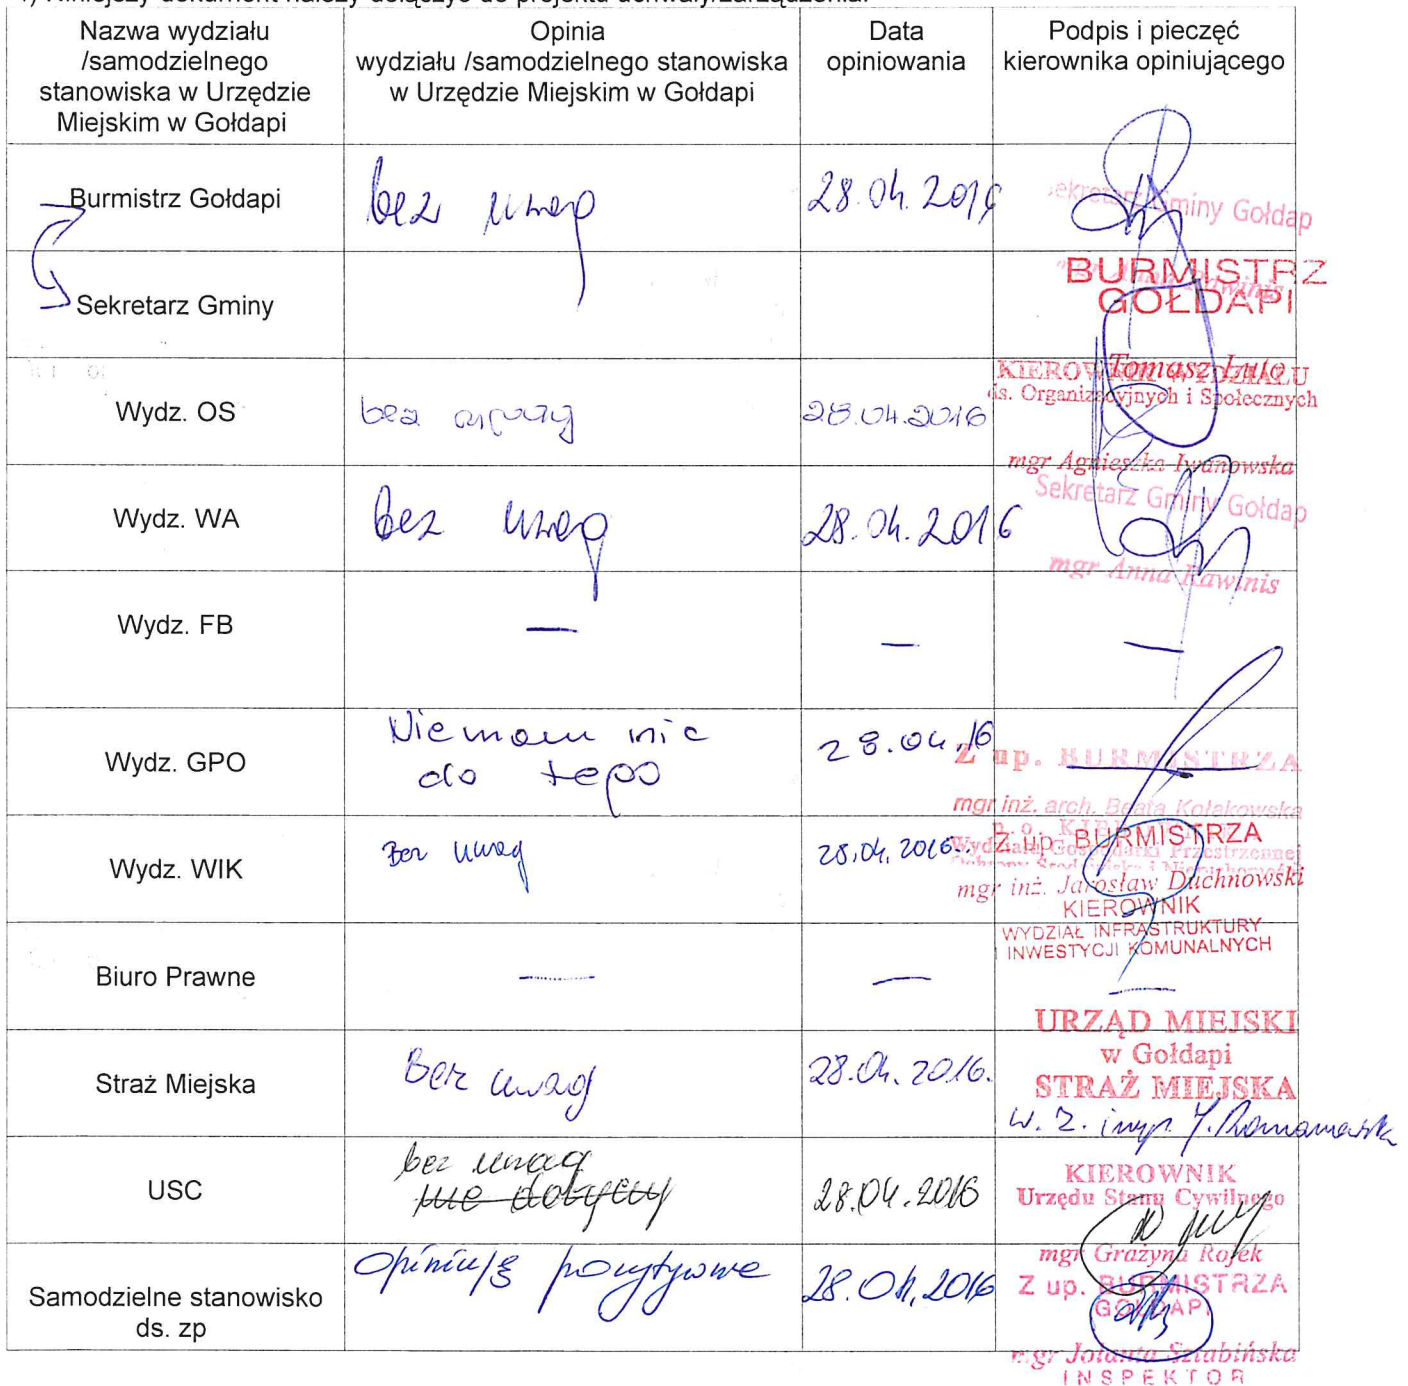 4) Niniejszy dokument należy dołączyć do projektu uchwały/zarządzenia.
Nazwa wydziału
/samodzielnego
stanowiska w Urzędzie
Miejskim w Gołdapi
Opinia
wydziału /samodzielnego stanowiska
w Urzędzie Miejskim w Gołdapi
Data
opiniowania
Podpis i pieczęć
kierownika opiniującego
Burmistrz Gołdapi
bez uwag
28.04.2016
Sekretarz Gminy Gołdap
Sekretarz Gminy
BURMISTRZ
GOŁDAPI
Tomasz Luto
Wydz. OS
bez uwag
28.04.2016
KIEROWNIK WYDZIAŁU
ds. Organizacyjnych i Społecznych
mgr Agnieszka Iwanowska
Wydz. WA
bez uwag
28.04.2016
Sekretarz Gminy Gołdap
mgr Anna Rawinis
Wydz. FB
—
—
—
Wydz. GPO
Nie mam nic
do tego
28.04.16
Z up. BURMISTRZA
mgr inż. arch. Beata Kołakowska
Wydz. WIK
Bez uwag
28.04.2016.
Z up. BURMISTRZA
mgr inż. Jarosław Duchnowski
KIEROWNIK
WYDZIAŁ INFRASTRUKTURY
INWESTYCJI KOMUNALNYCH
Biuro Prawne
—
—
—
Straż Miejska
Bez uwag
28.04.2016.
URZĄD MIEJSKI
w Gołdapi
STRAŻ MIEJSKA
w. z. insp. J. Romanowska
USC
bez uwag
nie dotyczy
28.04.2016
KIEROWNIK
Urzędu Stanu Cywilnego
mgr Grażyna Rojek
Samodzielne stanowisko
ds. zp
Opiniuję pozytywne
28.04.2016
Z up. BURMISTRZA
GOŁDAPI
mgr Jolanta Sztabińska
INSPEKTOR